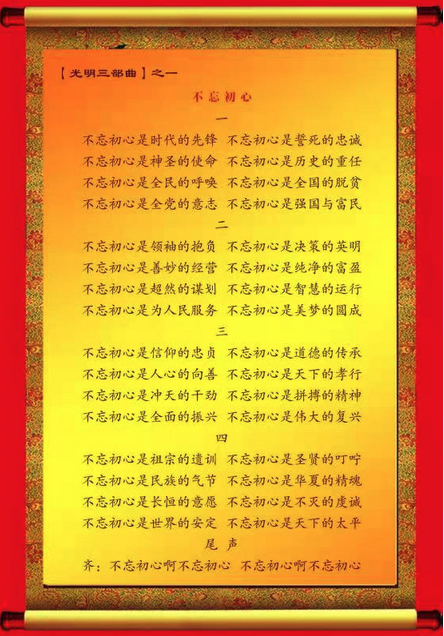 【光明三部曲】之一
不忘初心
一
不忘初心是时代的先锋 不忘初心是誓死的忠诚
不忘初心是神圣的使命 不忘初心是历史的重任
不忘初心是全民的呼唤 不忘初心是全国的脱贫
不忘初心是全党的意志 不忘初心是强国与富民
二
不忘初心是领袖的抱负 不忘初心是决策的英明
不忘初心是善妙的经营 不忘初心是纯净的富盈
不忘初心是超然的谋划 不忘初心是智慧的运行
不忘初心是为人民服务 不忘初心是美梦的圆成
三
不忘初心是信仰的忠贞 不忘初心是道德的传承
不忘初心是人心的向善 不忘初心是天下的孝行
不忘初心是冲天的干劲 不忘初心是拼搏的精神
不忘初心是全面的振兴 不忘初心是伟大的复兴
四
不忘初心是祖宗的遗训 不忘初心是圣贤的叮咛
不忘初心是民族的气节 不忘初心是华夏的精魂
不忘初心是长恒的意愿 不忘初心是不灭的虔诚
不忘初心是世界的安定 不忘初心是天下的太平
尾 声
齐：不忘初心啊不忘初心 不忘初心啊不忘初心